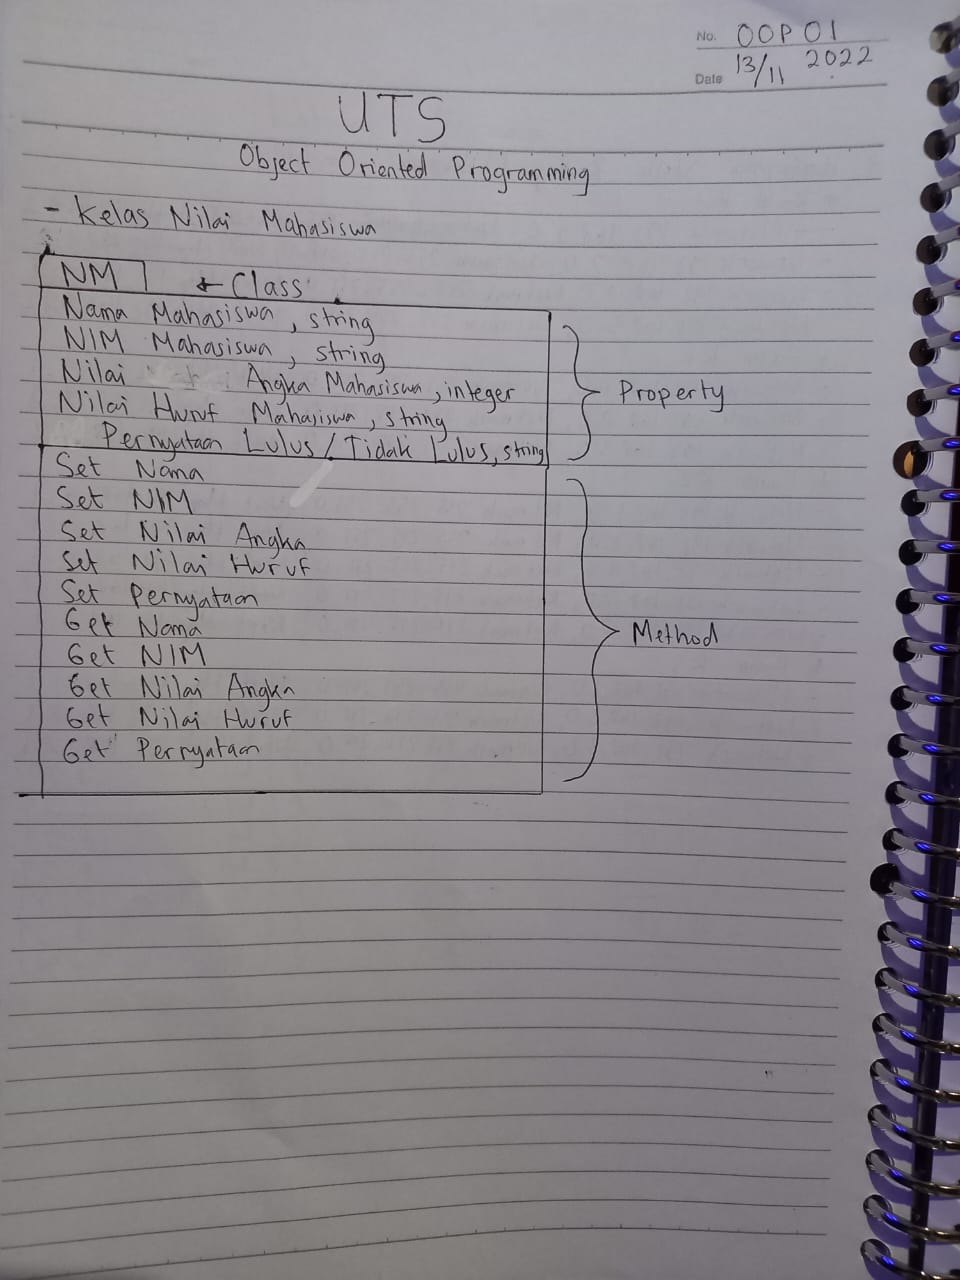 No. OOP 01
Date 13/11 2022
UTS
Object Oriented Programming
- Kelas Nilai Mahasiswa
NM ← Class
Nama Mahasiswa, string
NIM Mahasiswa, string
Nilai Angka Mahasiswa, integer
Nilai Huruf Mahasiswa, string
Property
Pernyataan Lulus / Tidak Lulus, string
Set Nama
Set NIM
Set Nilai Angka
Set Nilai Huruf
Set Pernyataan
Get Nama
Method
Get NIM
Get Nilai Angka
Get Nilai Huruf
Get Pernyataan